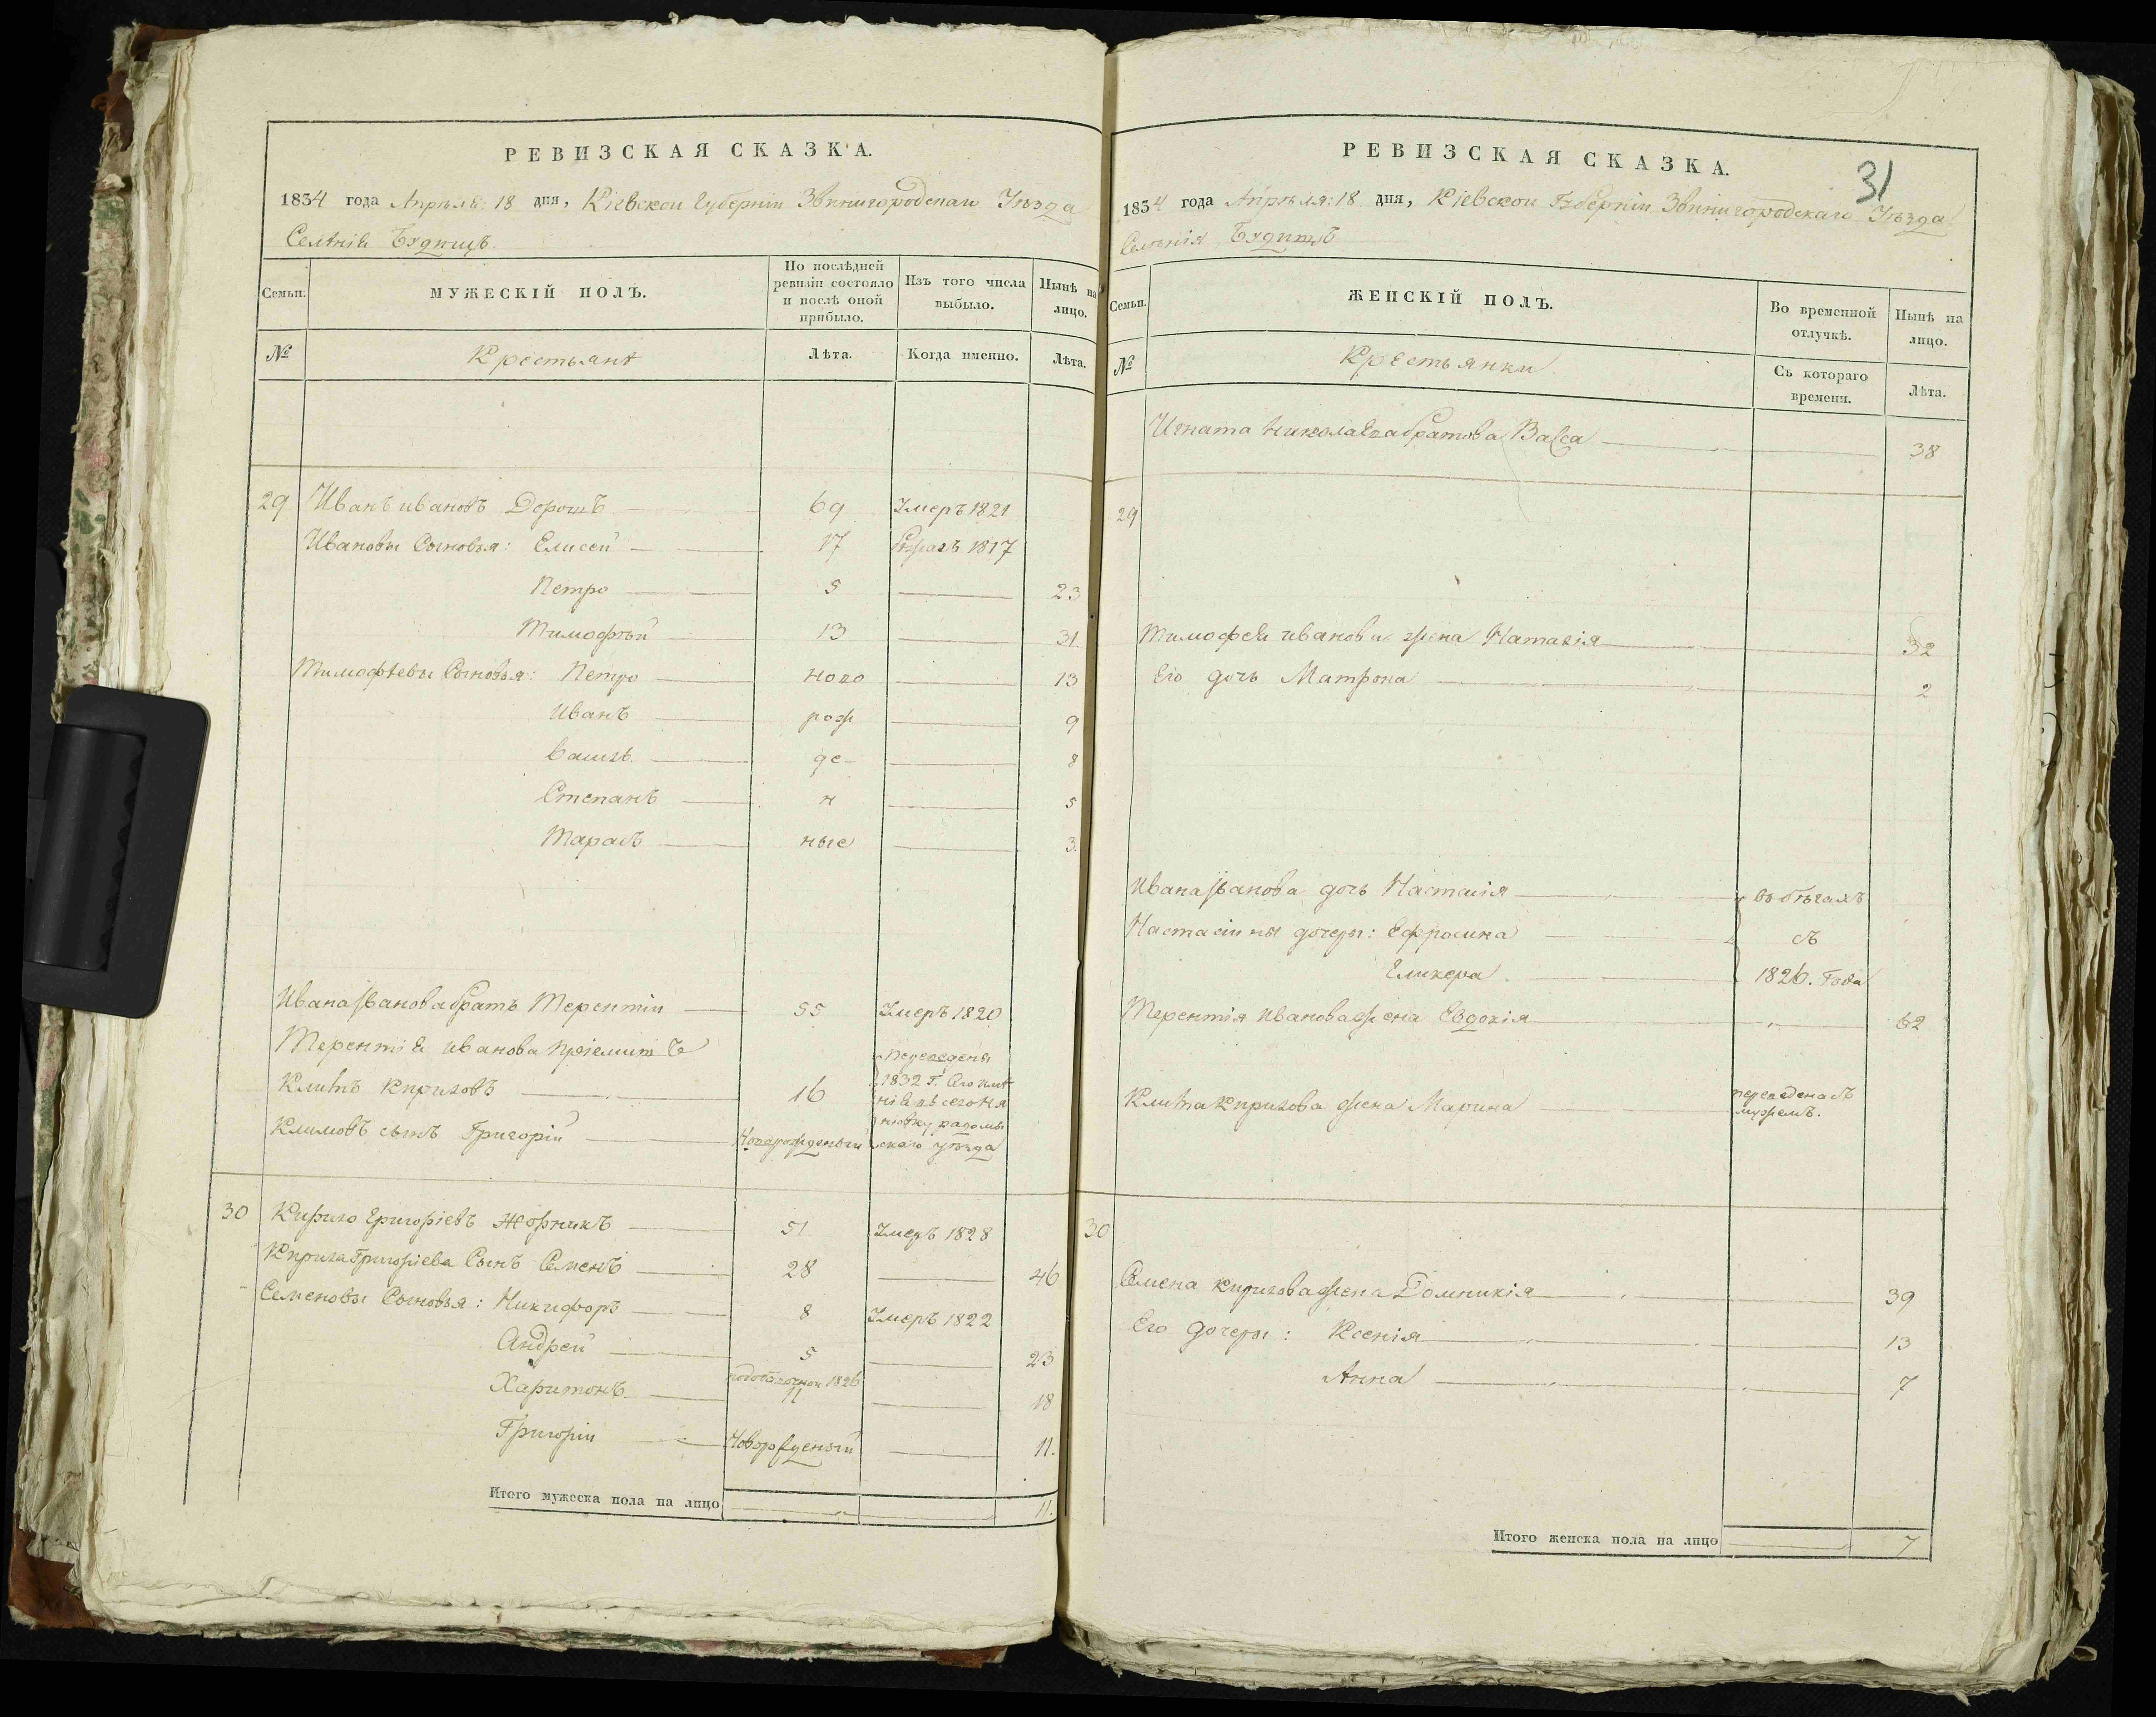 РЕВИЗСКАЯ СКАЗКА.
1834 года Апреля: 18 дня, Кіевской Губерніи Звинигородскаго Уѣзда
Селѣнія Будищъ
Семьи.
МУЖЕСКІЙ ПОЛЪ.
По послѣдней ревизіи состояло и послѣ оной прибыло.
Изъ того числа выбыло.
Нынѣ на лицо.
№
Крестьянѣ
Лѣта.
Когда именно.
Лѣта.
29 Иванъ ивановъ Дорошъ 69 Умеръ 1821
Ивановы Сыновья: Елисей 17 1817
Петро 5 23
Тимофѣй 13 31.
Тимофѣевы Сыновья: Петро ново 13
Иванъ рож 9
де- 8
Степанъ н 5
Тарасъ ные 3.
Ивана Иванова братъ Терентіи 55 Умеръ 1820
Терентія иванова пріемишъ
Климъ Кириловъ 16
переведены
1832 г.
уѣзда
Климовъ сынъ Григорій Новорожденый
30 Кирило Григоріевъ Жорникъ 51 Умеръ 1828
Кирила Григоріева Сынъ Семенъ 28 46
Семеновы Сыновья: Никифоръ 8 Умеръ 1822
Андрей 5 23
1826
Харитонъ 11 18
Григоріи Новорожденый 11.
Итого мужеска пола на лицо 11.
РЕВИЗСКАЯ СКАЗКА.
31
1834 года Апрѣля: 18 дня, Кіевской Губерніи Звинигородскаго Уѣзда
Селѣнія Будищъ
Семьи.
ЖЕНСКІЙ ПОЛЪ.
Во временной отлучкѣ.
Нынѣ на лицо.
№
Крестьянки
Съ котораго времени.
Лѣта.
Игната Николаева братова 38
29
Тимофея иванова жена Наталія 32
Его дочь Матрона 2
Ивана Иванова дочь Настасія въ бѣгахъ
Настасіины дочеры: Ефросина съ
Гликера 1826. Года
Терентія Иванова жена Евдокія 62
Клима Кирилова жена Марина переведена съ мужемъ.
30
Семена Кирилова жена Домникія 39
Его дочеры: Ксенія 13
Анна 7
Итого женска пола на лицо 7